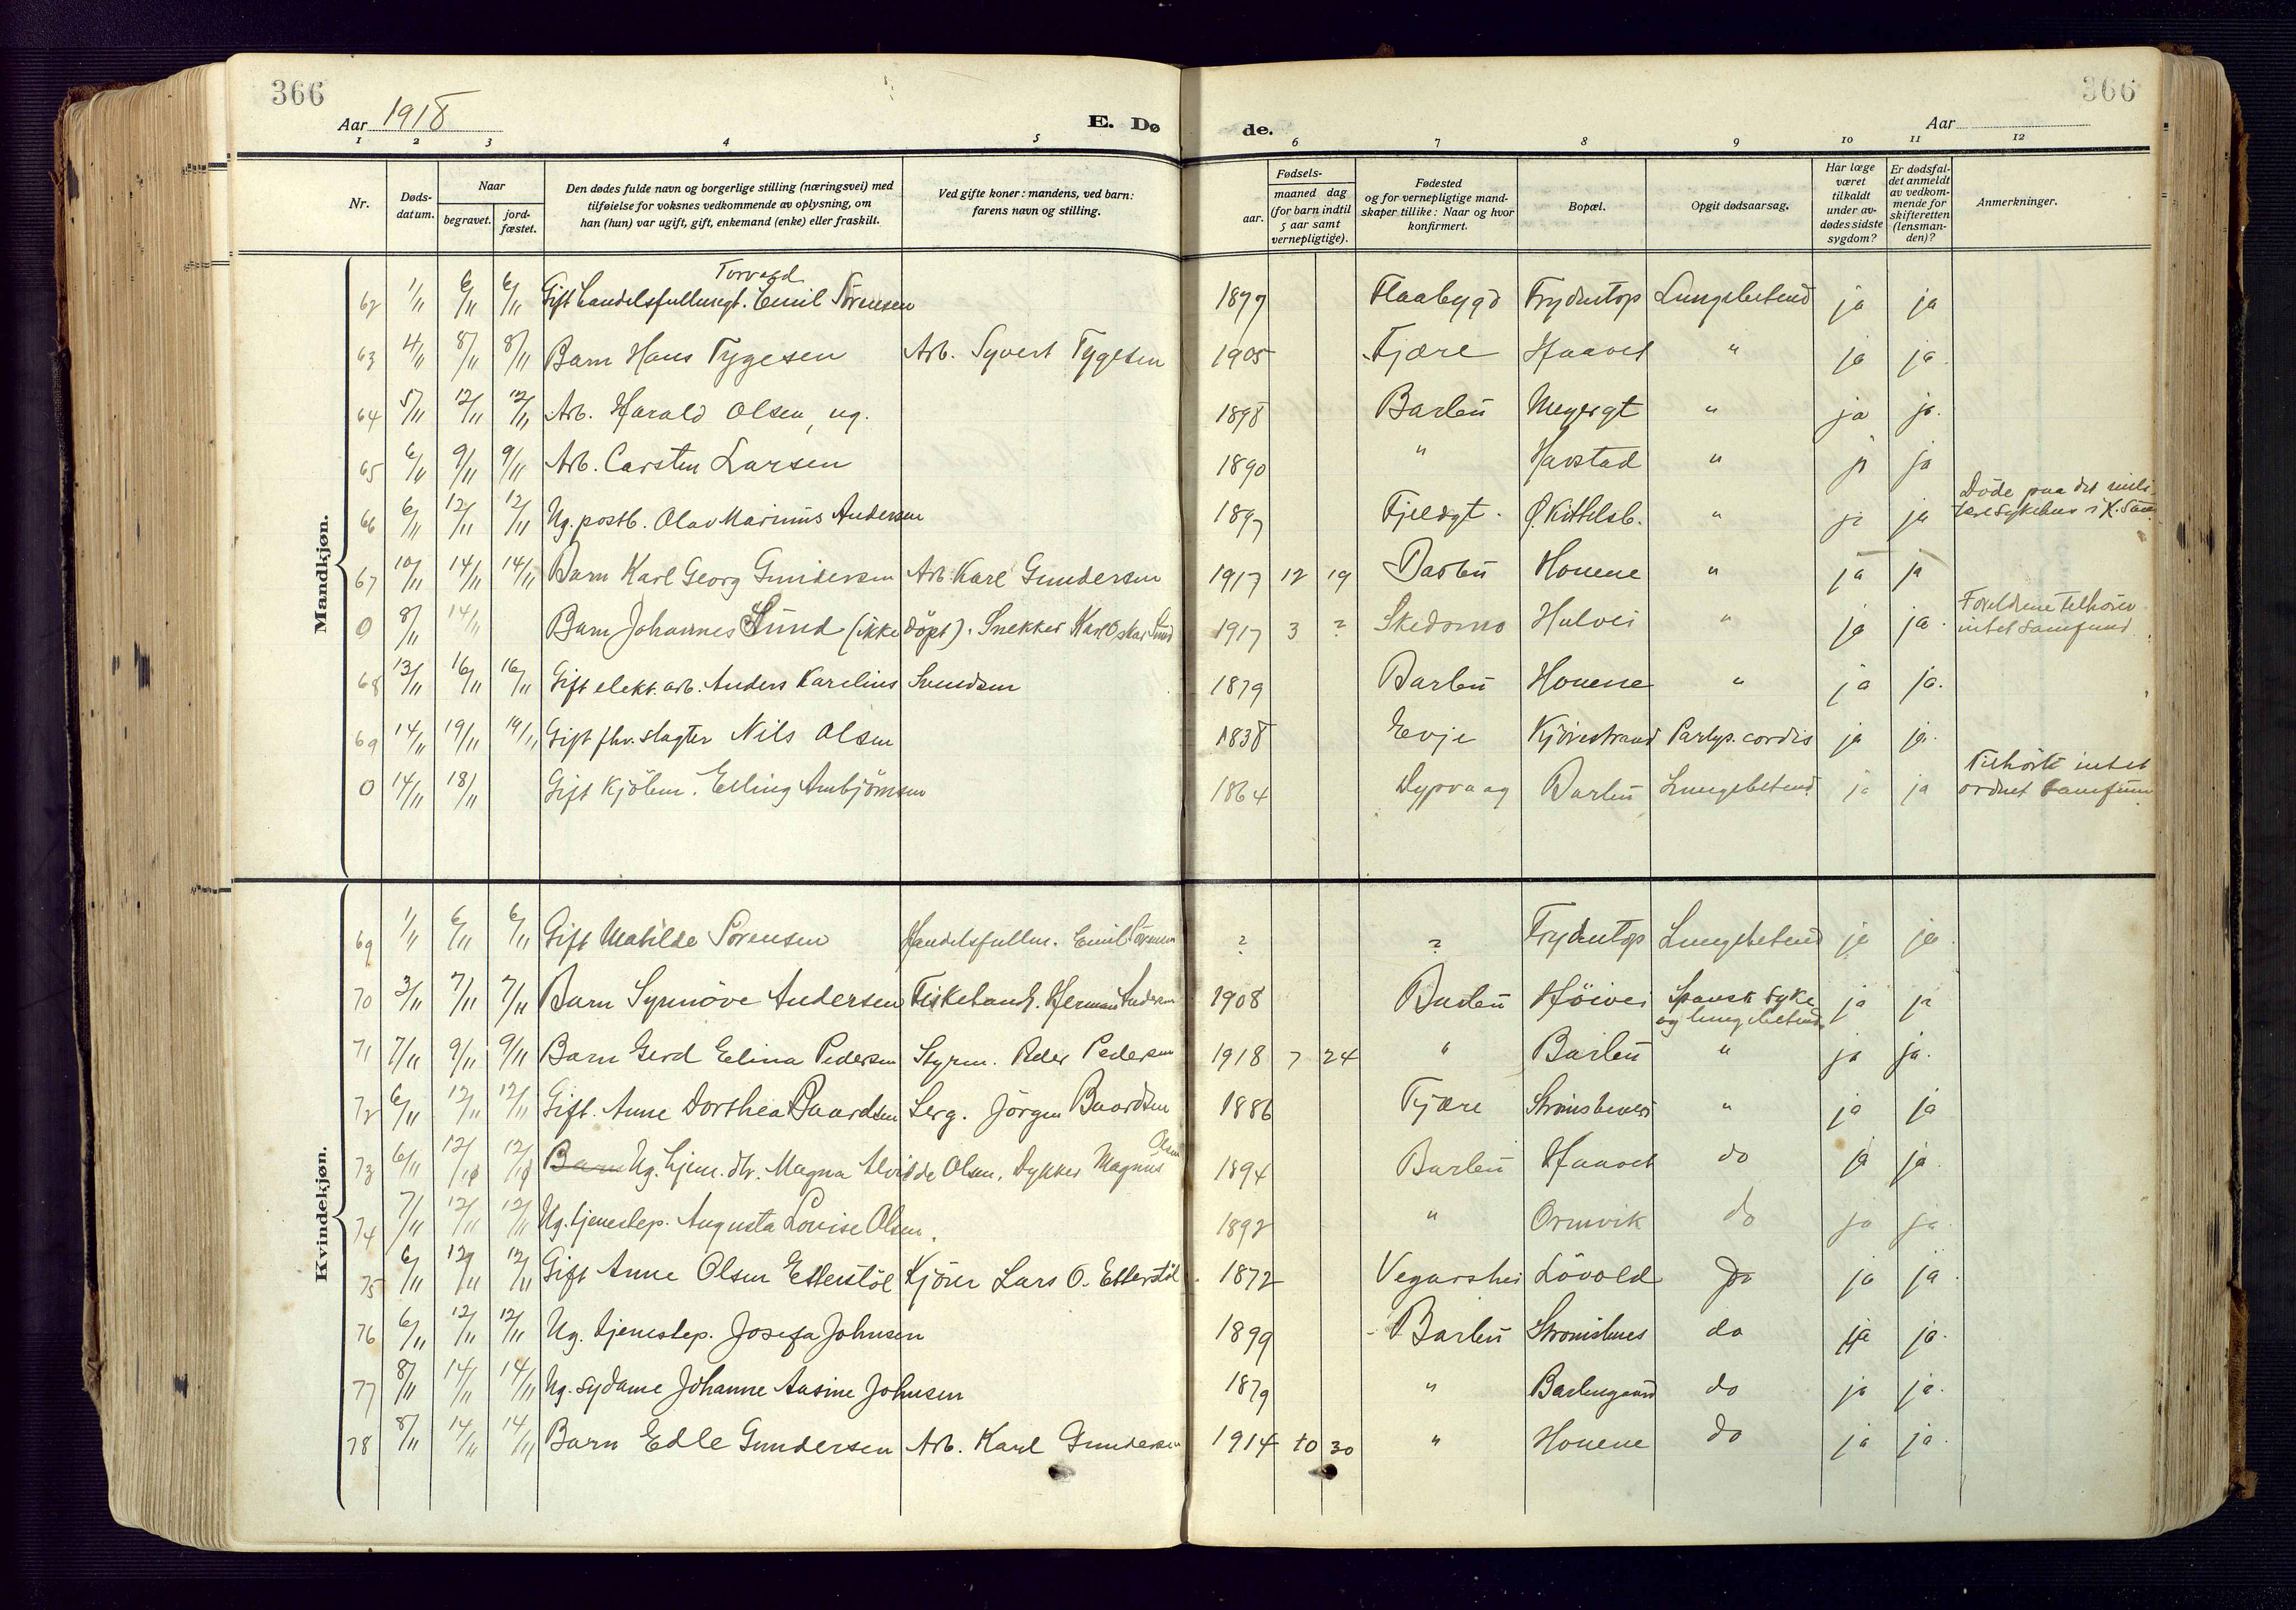 366
366
Aar 1918
E. Dø
de.
Aar
1 2 3 4 5 6 7 8 9 10 11 12
Nr.
Døds-
datum.
Naar
begravet.
jord-
fæstet.
Den dødes fulde navn og borgerlige stilling (næringsvei) med
tilføielse for voksnes vedkommende av oplysning, om
han (hun) var ugift, gift, enkemand (enke) eller fraskilt.
Ved gifte koner: mandens, ved barn:
farens navn og stilling.
Fødsels-
aar.
maaned dag
(for barn indtil
5 aar samt
vernepligtige).
Fødested
og for vernepligtige mand-
skaper tillike: Naar og hvor
konfirmert.
Bopæl.
Opgit dødsaarsag.
Har læge
været
tilkaldt
under av-
dødes sidste
sygdom?
Er dødsfal-
det anmeldt
av vedkom-
mende for
skifteretten
(lensman-
den)?
Anmerkninger.
Mandkjøn.
Torvald
62 1/11 6/11 6/11 Gift handelsfullmegt. Emil Sørensen 1877 Flaabygd Frydentop Lungebetend ja ja
63 4/11 8/11 8/11 Barn Hans Tygesen Arb. Syvert Tygesen 1905 Fjære Haavet " ja ja.
64 5/11 12/11 12/11 Arb. Harald Olsen, ug. 1898 Barbu Meyergt " ja ja.
65 6/11 9/11 9/11 Arb. Carsten Larsen 1890 " Havstad " ja ja
66 6/11 12/11 12/11 Ug. postb. Olav Marinius Andersen 1897 Fjeldgt. Ø. Kittelsb. " ja ja Døde paa det mili-
tære sykehus i K. Sand
67 10/11 14/11 14/11 Barn Karl Georg Gundersen Arb. Karl Gundersen 1917 12 19 Barbu Houene " ja ja
0 8/11 14/11 Barn Johannes Lund (ikke døpt). Snekker Karl Oskar Lund 1917 3 ? Skedsmo Hulvei " ja ja. Foreldrene tilhører
intet samfund.
68 13/11 16/11 16/11 Gift elekt. arb. Anders Karelius Svendsen 1879 Barbu Houene " ja ja.
69 14/11 19/11 19/11 Gift fhv. slagter Nils Olsen 1838 Evje Kjørestrand Parlys. cordis ja ja.
0 14/11 18/11 Gift kjølem. Elling Ambjørnsen 1864 Dypvaag Barbu Lungebetend ja ja Tilhørte intet
ordnet samfund
Kvindekjøn.
69 1/11 6/11 6/11 Gift Matilde Sørensen Handelsfullm. Emil Sørensen ? ? Frydentop Lungebetend ja ja.
70 3/11 7/11 7/11 Barn Synnøve Andersen Fiskehandl. Herman Andersen 1908 Barbu Høivei Spansk syke
og lungebetend. ja ja
71 7/11 9/11 9/11 Barn Gerd Elina Pedersen Styrm. Peder Pedersen 1918 7 24 " Barbu " ja ja.
72 6/11 12/11 12/11 Gift. Anne Dorthea Baardsen Serg. Jørgen Baardsen 1886 Fjære Strømsbuvei " ja ja
73 6/11 12/11 12/11 Barn Ug. hjem. dtr. Magna Alvilde Olsen, Dykker Magnus Olsen 1894 Barbu Haavet do ja ja.
74 7/11 12/11 12/11 Ug. tjenestep. Augusta Lovise Olsen. 1892 " Ormvik do ja ja.
75 6/11 12/11 12/11 Gift Anne Olsen Etterstøl Kjører Lars O. Etterstøl. 1872 Vegarshei Løvold do ja ja.
76 6/11 12/11 12/11 Ug. tjenestep. Josefa Johnsen 1899 Barbu Strømsbues do ja ja.
77 8/11 14/11 14/11 Ug. sydame Johanne Aasine Johnsen 1879 " Barbugaard do ja ja.
78 8/11 14/11 14/11 Barn Edle Gundersen Arb. Karl Gundersen 1914 10 30 " Houene do ja ja.